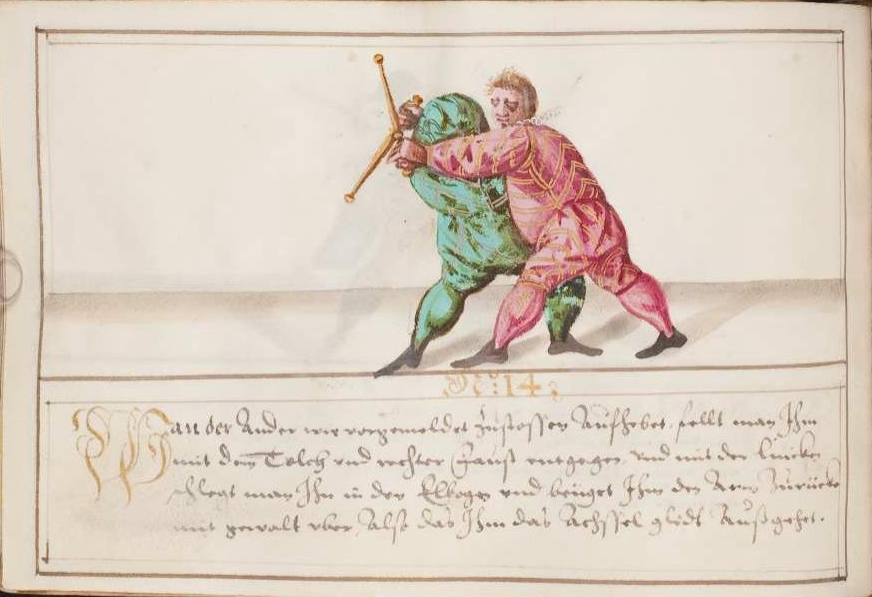 No: 14:
Wan der Ander wie vorgemeldet Zustossen Aufhebet, fellt man Ihm
mit dem Tolch vnd rechter Faust entgegen vnd mit der lincken
schlegt man Ihn in den Elbogen vnd beüget Ihm den Arm Zurücke
mit gewalt vber, Also das Ihm das Achssel glidt Außgehet.